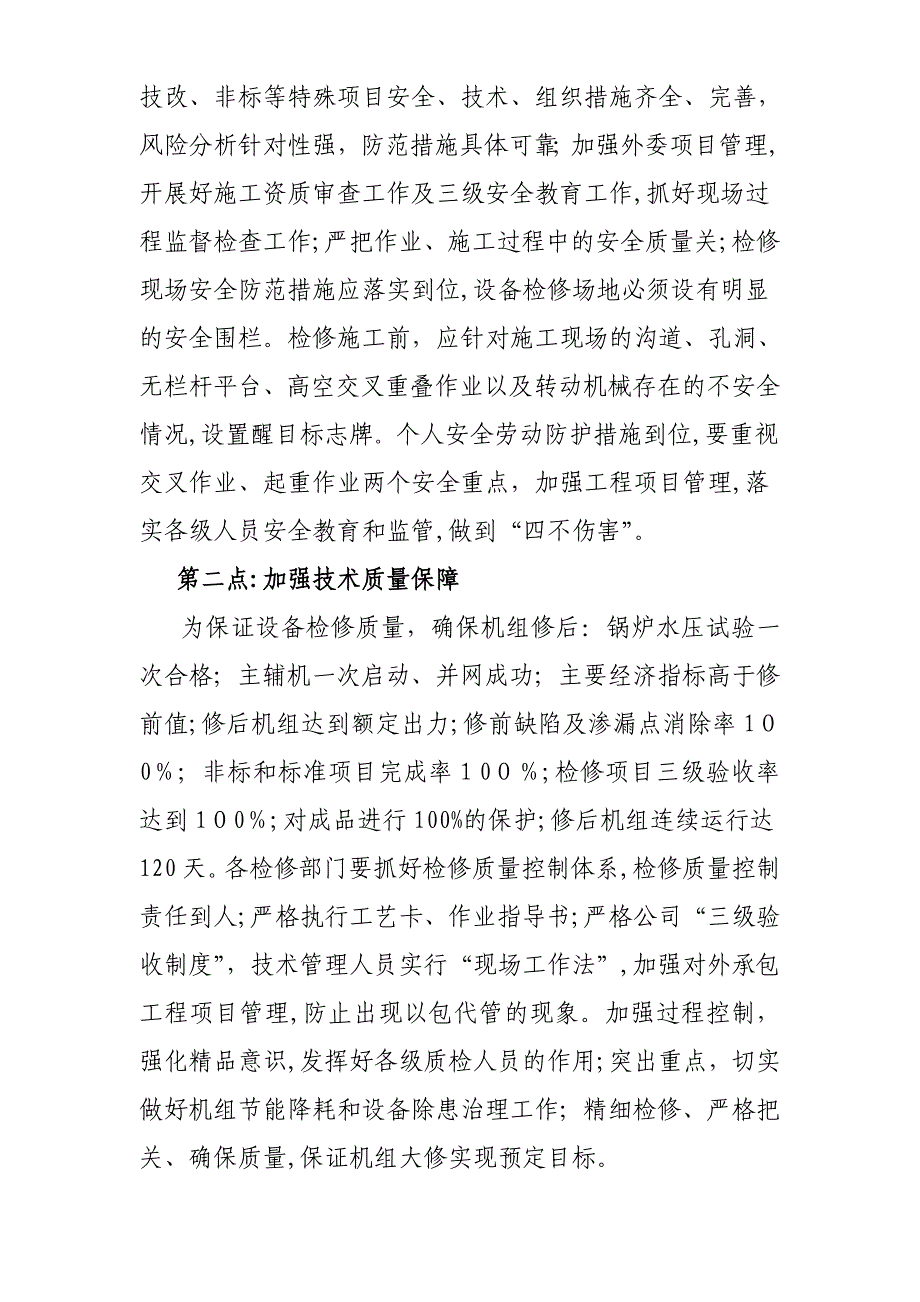 技改、非标等特殊项目安全、技术、组织措施齐全、完善，
风险分析针对性强，防范措施具体可靠；加强外委项目管理,
开展好施工资质审查工作及三级安全教育工作,抓好现场过
程监督检查工作;严把作业、施工过程中的安全质量关;检修
现场安全防范措施应落实到位,设备检修场地必须设有明显
的安全围栏。检修施工前，应针对施工现场的沟道、孔洞、
无栏杆平台、高空交叉重叠作业以及转动机械存在的不安全
情况,设置醒目标志牌。个人安全劳动防护措施到位,要重视
交叉作业、起重作业两个安全重点，加强工程项目管理,落
实各级人员安全教育和监管,做到“四不伤害”。
第二点:加强技术质量保障
为保证设备检修质量，确保机组修后：锅炉水压试验一
次合格；主辅机一次启动、并网成功；主要经济指标高于修
前值;修后机组达到额定出力;修前缺陷及渗漏点消除率１０
０%；非标和标准项目完成率１００％;检修项目三级验收率
达到１００%;对成品进行100%的保护;修后机组连续运行达
120天。各检修部门要抓好检修质量控制体系,检修质量控制
责任到人;严格执行工艺卡、作业指导书;严格公司“三级验
收制度”，技术管理人员实行“现场工作法”,加强对外承包
工程项目管理,防止出现以包代管的现象。加强过程控制，
强化精品意识,发挥好各级质检人员的作用;突出重点，切实
做好机组节能降耗和设备除患治理工作；精细检修、严格把
关、确保质量,保证机组大修实现预定目标。